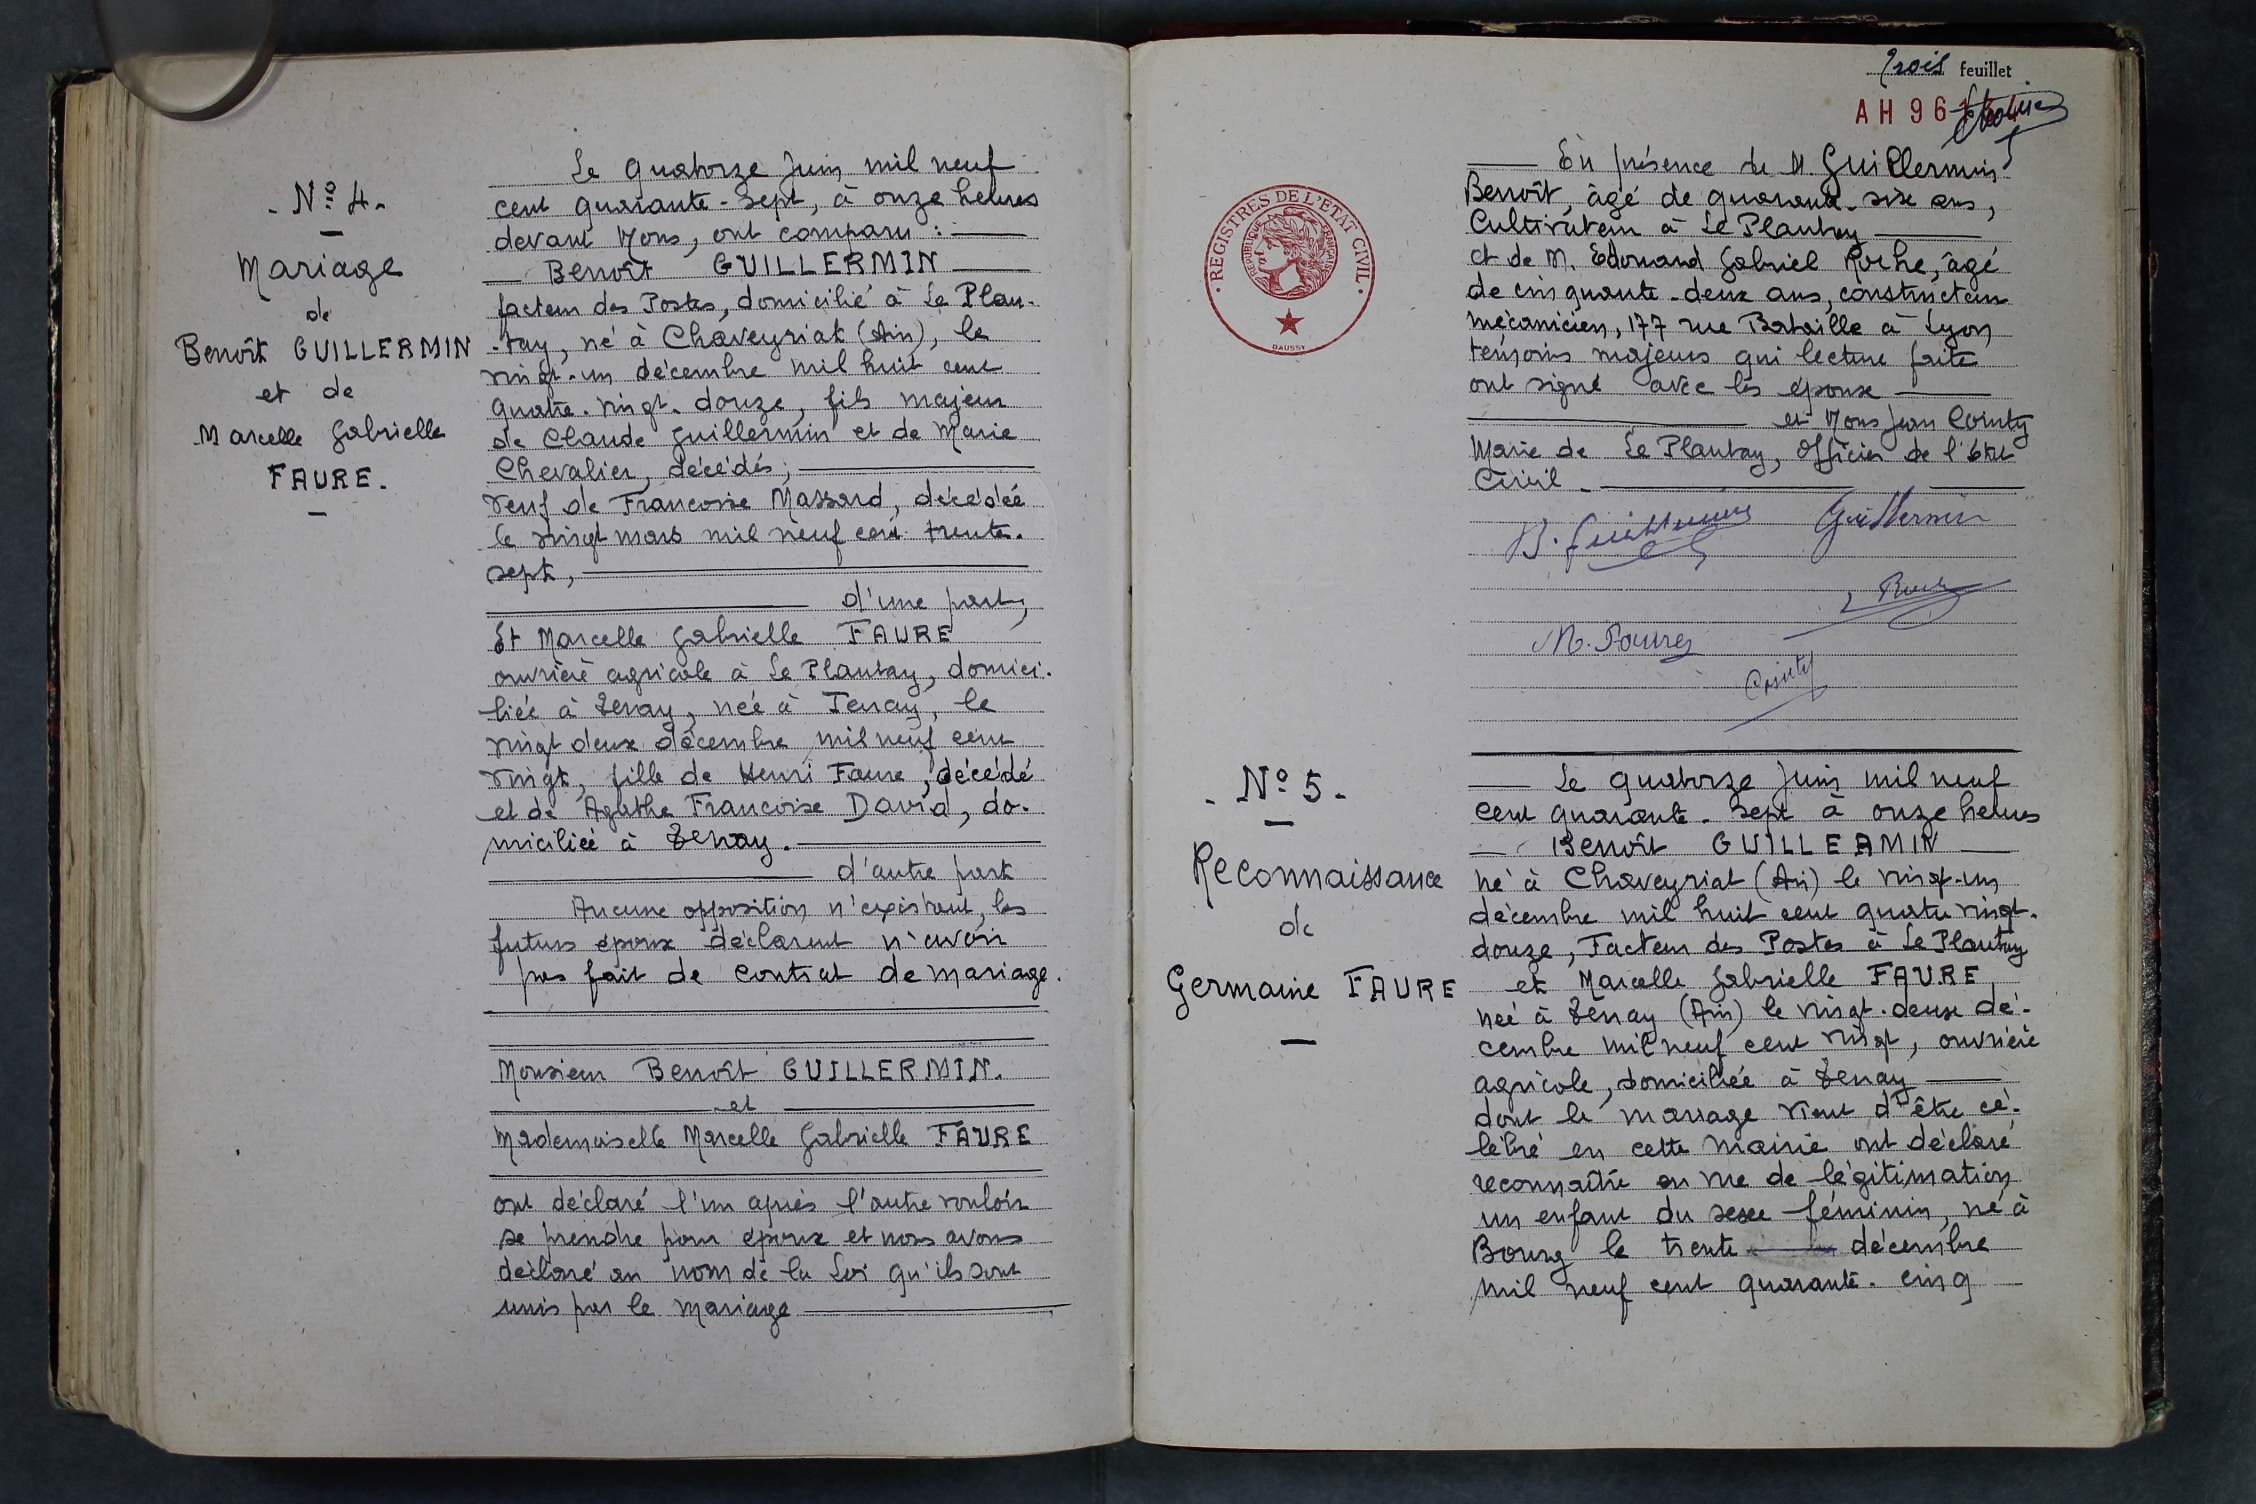 - Nº 4 -
Mariage
de
Benoît GUILLERMIN
et de
Marcelle Gabrielle
FAURE.
Le quatorze Juin mil neuf
cent quarante-sept, à onze heures
devant Nous, ont comparu :
Benoît GUILLERMIN
facteur des Postes, domicilié à Le Plan-
-tay, né à Chaveyriat (Ain), le
vingt-un décembre mil huit cent
quatre-vingt-douze, fils majeur
de Claude Guillermin et de Marie
Chevalier, décédés;
veuf de Françoise Massard, décédée
le vingt mars mil neuf cent trente-
sept,
d'une part,
Et Marcelle Gabrielle FAURE
ouvrière agricole à Le Plantay, domici-
liée à Tenay, née à Tenay, le
vingt deux décembre mil neuf cent
vingt, fille de Henri Faure, décédé
et de Agathe Françoise David, do-
miciliée à Tenay.
d'autre part
Aucune opposition n'existant, les
futurs époux déclarent n'avoir
pas fait de contrat de mariage.
Monsieur Benoît GUILLERMIN.
et
Mademoiselle Marcelle Gabrielle FAURE
ont déclaré l'un après l'autre vouloir
se prendre pour époux et nous avons
déclaré au nom de la Loi qu'ils sont
unis par le mariage
Trois feuillet
AH 96
REGISTRES DE L'ÉTAT CIVIL
RÉPUBLIQUE FRANÇAISE
DAUSSY
En présence de M. Guillermin
Benoît, âgé de quarante-six ans,
Cultivateur à Le Plantay
et de M. Edouard Gabriel Roche, âgé
de cinquante-deux ans, constructeur
mécanicien, 177 rue Bataille à Lyon
témoins majeurs qui lecture faite
ont signé avec les époux
et Nous Jean Cointy
Maire de Le Plantay, Officier de l'Etat
Civil.
B. Guillermin Guillermin
Roche
M. Faure
Cointy
- Nº 5 -
Reconnaissance
de
Germaine FAURE
Le quatorze Juin mil neuf
cent quarante-sept à onze heures
Benoît GUILLERMIN
né à Chaveyriat (Ain) le vingt-un
décembre mil huit cent quatre vingt-
douze, Facteur des Postes à Le Plantay
et Marcelle Gabrielle FAURE
née à Tenay (Ain) le vingt-deux dé-
cembre mil neuf cent vingt, ouvrière
agricole, domiciliée à Tenay
dont le mariage vient d'être cé-
lébré en cette mairie ont déclaré
reconnaître en vue de légitimation
un enfant du sexe féminin, né à
Bourg le trente décembre
mil neuf cent quarante-cinq